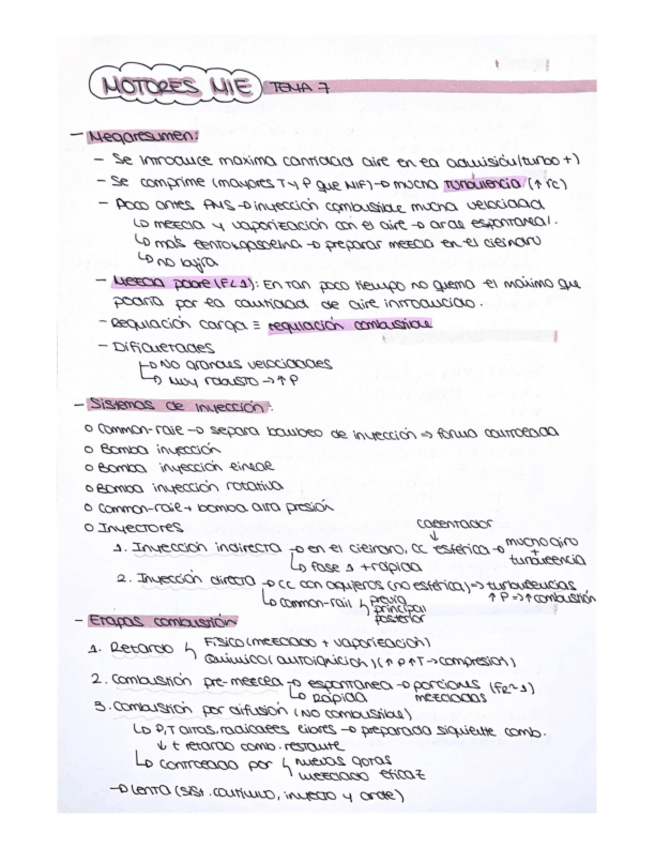 MOTORES MIE TEMA 7
- Megaresumen:
- Se introduce maxima cantidad aire en la admisión (turbo +)
- Se comprime (mayores T y P que MIF) → mucha turbulencia (↑ rc)
- Poco antes PMS → inyección combustible mucha velocidad
↳ mezcla y vaporización con el aire → arde espontanea/.
↳ más lento gasolina → preparar mezcla en el cilindro
↳ no bujía
- Mezcla pobre (F<1): En tan poco tiempo no quema el máximo que
podría por la cantidad de aire introducido.
- Regulación carga ≡ regulación combustible
- Dificultades
→ No grandes velocidades
→ Muy robusto → ↑ P
- Sistemas de inyección:
o Common-rail → separa bombeo de inyección ⇒ forma controlada
o Bomba inyección
o Bomba inyección lineal
o Bomba inyección rotativa
o Common-rail + bomba alta presión
o Inyectores
calentador
↓
1. Inyección indirecta → en el cilindro, CC esférica → mucho giro + turbulencia
↳ fase 1 + rápida
2. Inyección directa → CC con agujeros (no esférica) ⇒ turbulencias
↑ P ⇒ ↑ combustión
↳ common-rail ↳ previa
principal
posterior
- Etapas combustión
1. Retardo ↳ Físico (mezclado + vaporización)
Químico (autoignición) (↑ P ↑ T → compresión)
2. Combustión pre-mezcla → espontanea → porciones (FR~1)
↳ Rápida mezcladas
3. Combustión por difusión (NO combustible)
↳ P, T altas, radicales libres → preparada siguiente comb.
↓ t retardo comb. restante
↳ controlado por ↳ nuevas gotas
mezclado eficaz
→ Lenta (sist. continuo, inyecto y arde)